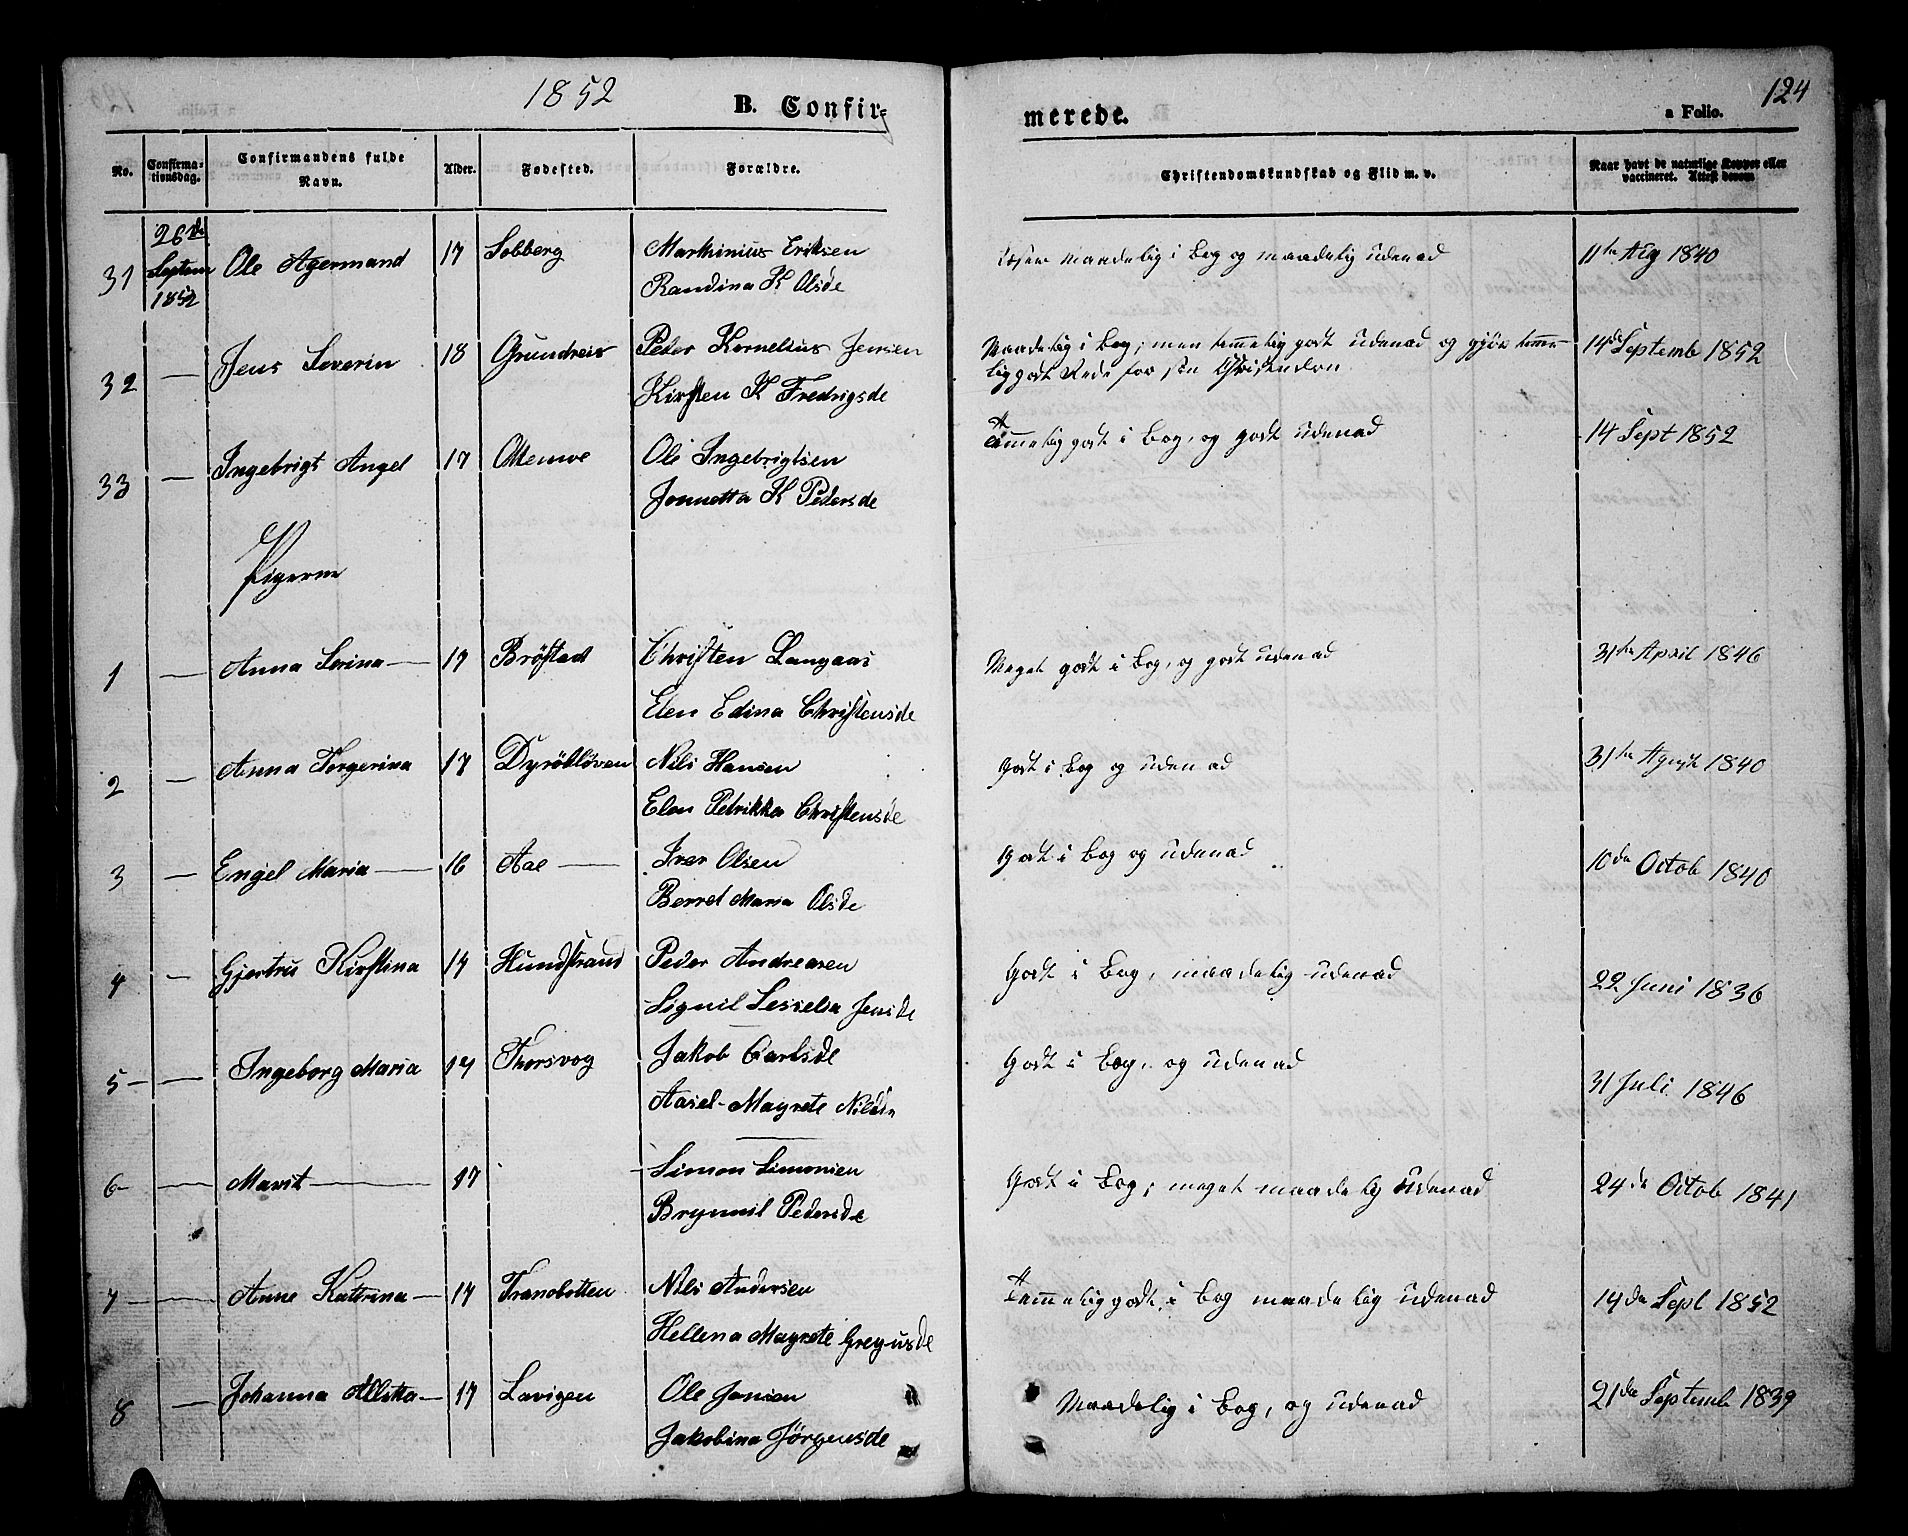 1852
B. Confir-
merede.
124
a Folio.
No.
Confirma-
tionsdag.
Confirmandens fulde
Navn.
Alder.
Fødested.
Forældre.
Christendomskundskab og Flid m. v.
Naar havt de naturlige Kopper eller
vaccineret. Attest derom
31 26de Septem 1852 Ole Agermand 17 Solberg Marthinius Eriksen
Randina K Olsde
Læser Maadelig i Bog og maadelig udenad 11te Aug 1840
32 — Jens Severin 18 Grundreis Peder Kornelius Jensen
Kirsten K Fredrigsde
Maadelig i Bog; men temmelig godt udenad og gjør temme-
lig godt Rede for sin Christendom 14de Septemb 1852
33 — Ingebrigt Angel 17 Ole Ingebrigtsen
Jonnetta K Pedersde
Temmelig godt i Bog, og godt udenad 14 Sept 1852
Pigerne
1 — Anna Serina — 17 Brøstad Christen Langaas
Elen Edina Christensde
Meget godt i Bog, og godt udenad 31te April 1846
2 — Anna Torgerina 17 Dyrökløven Nils Hansen
Elen Petrikka Christensde
Godt i Bog og udenad 31te August 1840
3 — Engel Maria — 16 Aae — Iver Olsen
Berret Maria Olsde
Godt i Bog og udenad 10de Octob 1840
4 — Gjertru Kirstina 17 Hundstrand Peder Andreasen
Signil Sesselia Jensde
Godt i Bog, maadelig udenad 22 Juni 1836
5 — — Ingeborg Maria 17 Thorsvog Jakob Carlsde
Aasel-Magrete Nilsde
Godt i Bog, og udenad 31 Juli 1846
6 — — Marit — 17 Simon Simonsen
Brynnil Pedersde
Godt i Bog; meget maadelig udenad 24de Octob 1841
7 — — Anne Kattrina — 17 Tranbotten Nils Andersen
Hellena Magrete Gregusde
Temmelig godt i Bog maadelig udenad 14de Sept 1852
8 — Johanna Alletta — 17 Lavigen Ole Jensen
Jakobina Jørgensde
Maadelig i Bog, og udenad 21de Septemb 1839